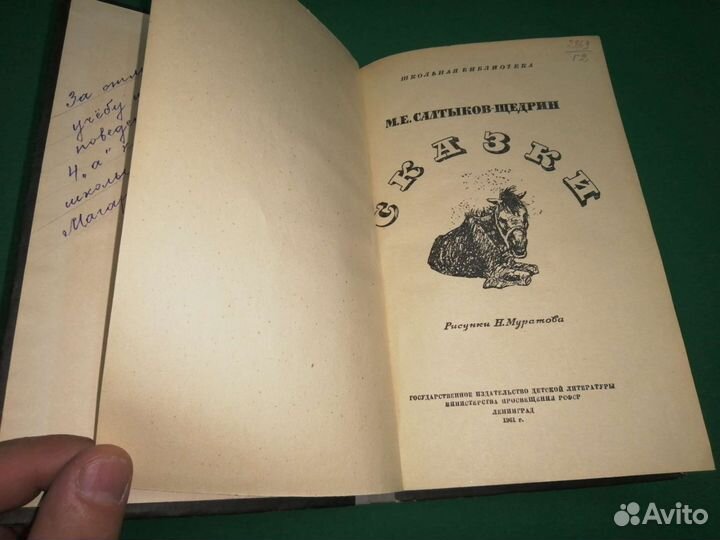 За
учёбу
поведе
4 „а"
школы
Магар
2869
Г2
ШКОЛЬНАЯ БИБЛИОТЕКА
М.Е.САЛТЫКОВ-ЩЕДРИН
СКАЗКИ
Рисунки Н.Муратова
ГОСУДАРСТВЕННОЕ ИЗДАТЕЛЬСТВО ДЕТСКОЙ ЛИТЕРАТУРЫ
МИНИСТЕРСТВА ПРОСВЕЩЕНИЯ РСФСР
ЛЕНИНГРАД
1961 г.
Avito